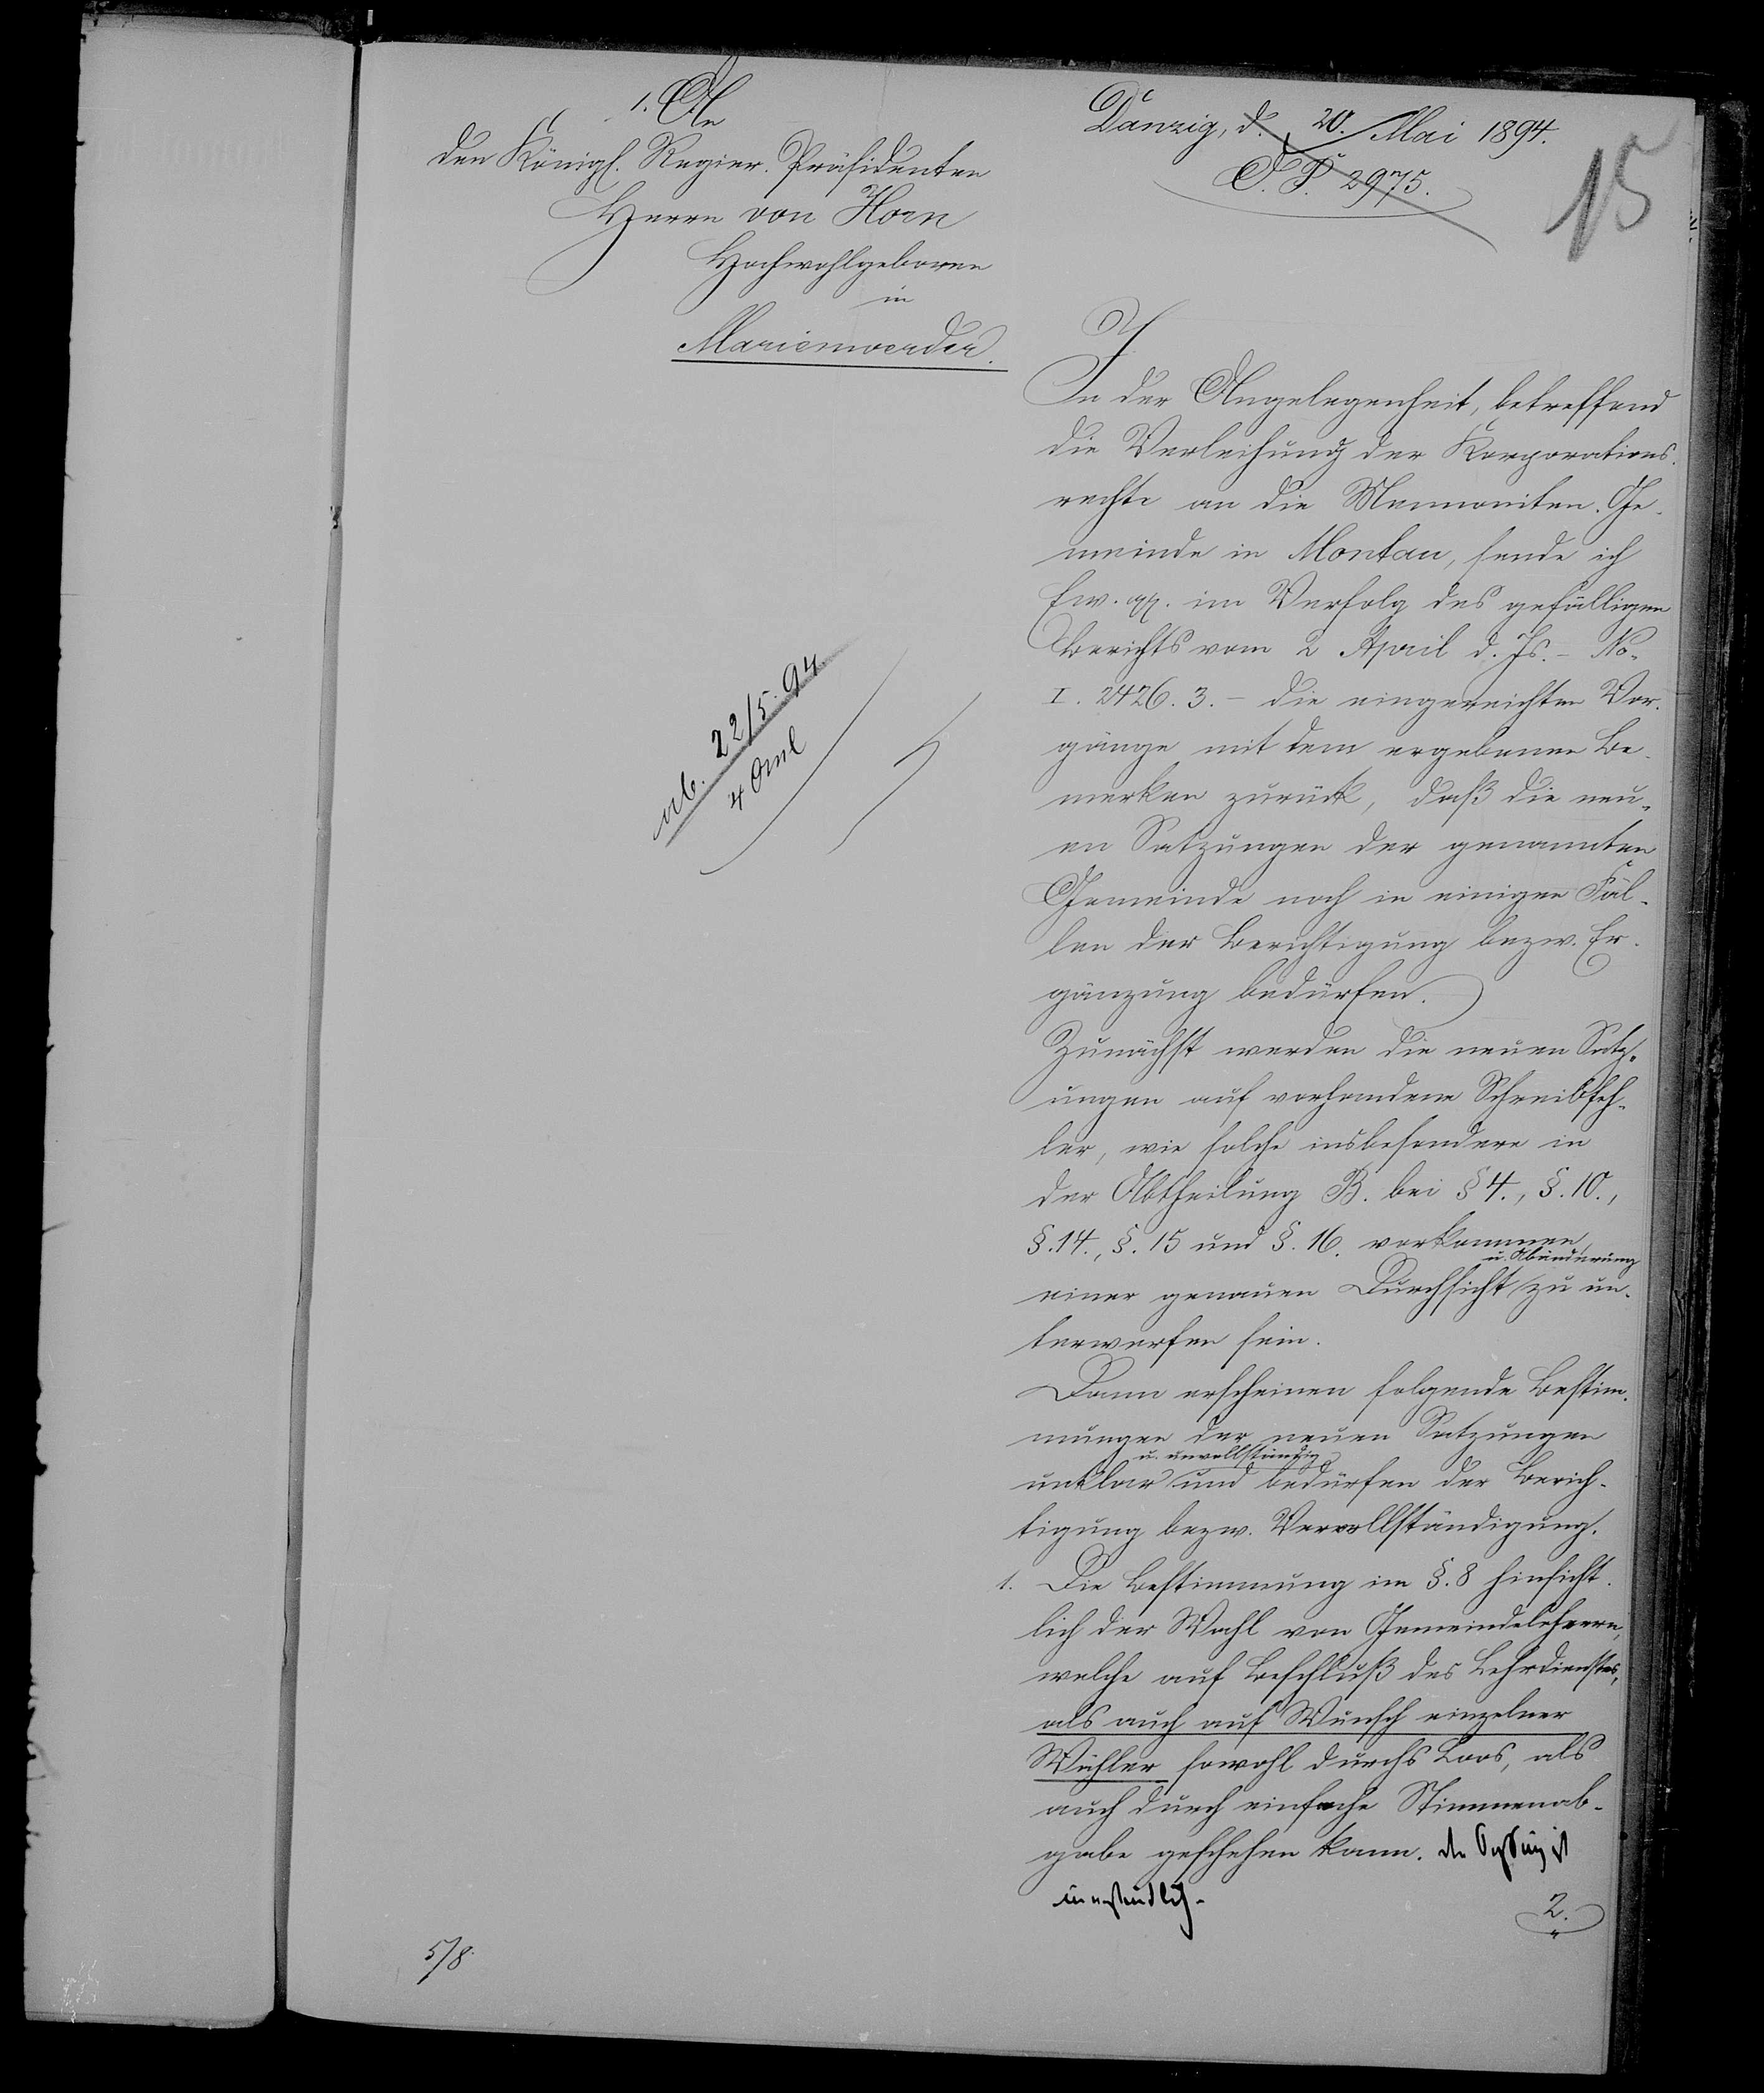 1. An
den Königl. Regier. Präsidenten
Herrn von Horn
Hochwohlgeboren
in
Marienwerder.
Danzig, d. 20. Mai 1894.
O. P. 2975.
15
In der Angelegenheit, betreffend
die Verleihung der Korporations-
rechte an die Mennoniten-Ge-
meinde in Montau, sende ich
Ew. pp. im Verfolg des gefälligen
Berichts vom 2 April d. Js. - No.
I. 2426. 3. - die eingereichten Vor-
gänge mit dem ergebenen Be-
merken zurück, daß die neu-
en Satzungen der genannten
Gemeinde noch in einigen Fäl-
len der Berichtigung bezw. Er-
gänzung bedürfen.
Zunächst werden die neuen Satz-
ungen auf vorhandene Schreibfeh-
ler, wie solche insbesondere in
der Abtheilung B. bei § 4., §. 10.,
§. 14., §. 15 und §. 16. vorkommen,
u. Abänderung
einer genauen Durchsicht zu un-
terwerfen sein.
Dann erscheinen folgende Bestim-
mungen der neuen Satzungen
u. unvollständig
unklar und bedürfen der Berich-
tigung bezw. Vervollständigung.
1. Die Bestimmung im §. 8 hinsicht-
lich der Wahl von Gemeindelehrern,
welche auf Beschluß des Lehrdienstes,
als auch auf Wunsch einzelner
Wähler sowohl durchs Loos, als
auch durch einfache Stimmenab-
gabe geschehen kann. ist
unverständlich.
2.
22/5. 94
4
5/8.